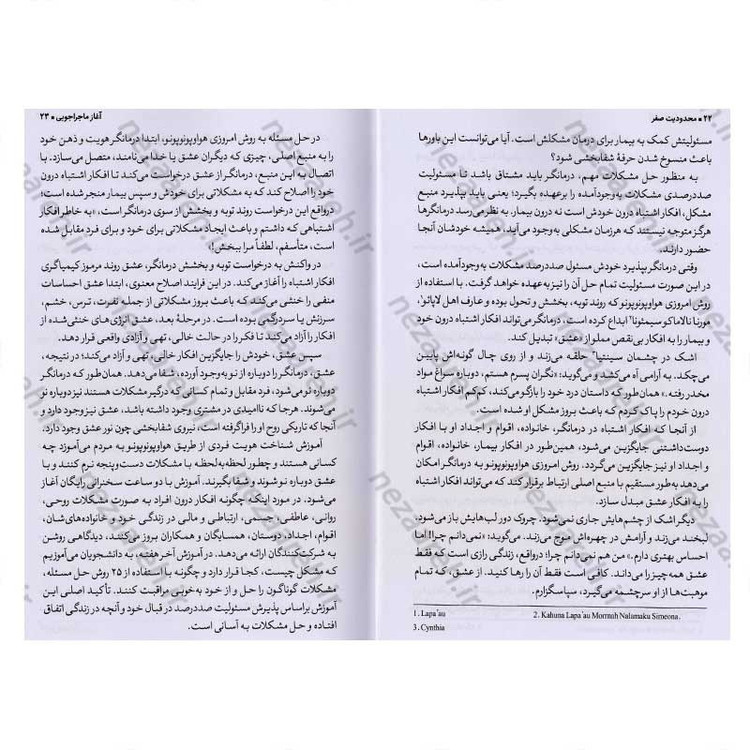 ۲۲ ■ محدودیت صفر
مسئولیتش کمک به بیمار برای درمان مشکلش است. آیا می‌توانست این باورها
باعث منسوخ شدن حرفهٔ شفابخشی شود؟
به منظور حل مشکلات مهم، درمانگر باید مشتاق باشد تا مسئولیت
صددرصدی مشکلات به‌وجودآمده را برعهده بگیرد؛ یعنی باید بپذیرد منبع
مشکل، افکار اشتباه درون خودش است نه درون بیمار. به نظر می‌رسد درمانگرها
هرگز متوجه نیستند که هرزمان مشکلی به‌وجود می‌آید، همیشه خودشان آنجا
حضور دارند.
وقتی درمانگر بپذیرد خودش مسئول صددرصد مشکلات به‌وجودآمده است،
در این صورت مسئولیت تمام حل آن را نیز به‌عهده خواهد گرفت. با استفاده از
روش امروزی هواوپونوپونو که روند توبه، بخشش و تحول بوده و عارف اهل لاپائو¹،
مورنا نالاماکو سیمئونا² ابداع کرده است، درمانگر می‌تواند افکار اشتباه درون خود
و بیمار را به افکار بی‌نقص مملو از «عشق» تبدیل کند.
اشک در چشمان سینتیا³ حلقه می‌زند و از روی چال گونه‌اش پایین
می‌چکد. به آرامی آه می‌کشد و می‌گوید: «نگران پسرم هستم، دوباره سراغ مواد
مخدر رفته.» همان‌طور که داستان درد خود را بازگو می‌کند، کم‌کم افکار اشتباه
درون خودم را پاک کردم که باعث بروز مشکل او شده است.
از آنجا که افکار اشتباه در درمانگر، خانواده، اقوام و اجداد او با افکار
دوست‌داشتنی جایگزین می‌شود، همین‌طور در افکار بیمار، خانواده، اقوام
و اجداد او نیز جایگزین می‌گردد. روش امروزی هواوپونوپونو به درمانگر امکان
می‌دهد به‌طور مستقیم با منبع اصلی ارتباط برقرار کند که می‌تواند افکار اشتباه
را به افکار عشق مبدل سازد.
دیگر اشک از چشم‌هایش جاری نمی‌شود. چروک دور لب‌هایش باز می‌شود.
لبخند می‌زند و آرامش در چهره‌اش موج می‌زند. می‌گوید: «نمی‌دانم چرا! اما
احساس بهتری دارم.» من هم نمی‌دانم چرا! درواقع، زندگی رازی است که فقط
عشق همه‌چیز را می‌داند. کافی است فقط آن را رها کنید. از عشق، که تمام
موهبت‌ها از او سرچشمه می‌گیرد، سپاسگزارم.
1. Lapa'au
2. Kahuna Lapa'au Morrnah Nalamaku Simeona.
3. Cynthia
آغاز ماجراجویی ■ ۲۳
در حل مسئله به روش امروزی هواوپونوپونو، ابتدا درمانگر هویت و ذهن خود
را به منبع اصلی، چیزی که دیگران عشق یا خدا می‌نامند، متصل می‌سازد. با
اتصال به این منبع، درمانگر از عشق درخواست می‌کند تا افکار اشتباه درون
خود را اصلاح کند که به مشکلاتی برای خودش و سپس بیمار منجر شده است؛
درواقع این درخواست روند توبه و بخشش از سوی درمانگر است، «به خاطر افکار
اشتباهی که داشتم و باعث ایجاد مشکلاتی برای خود و برای فرد مقابل شده
است، متأسفم، لطفاً مرا ببخش!»
در واکنش به درخواست توبه و بخشش درمانگر، عشق روند مرموز کیمیاگری
افکار اشتباه را آغاز می‌کند. در این فرایند اصلاح معنوی، ابتدا عشق احساسات
منفی را خنثی می‌کند که باعث بروز مشکلاتی از جمله نفرت، ترس، خشم،
سرزنش یا سردرگمی بوده است. در مرحلهٔ بعد، عشق انرژی‌های خنثی شده از
افکار را آزاد می‌کند تا فکر را در حالت خالی، تهی و آزادی واقعی قرار دهد.
سپس عشق، خودش را جایگزین افکار خالی، تهی و آزاد می‌کند؛ در نتیجه،
عشق، درمانگر را دوباره از نو به‌وجود آورده، شفا می‌دهد. همان‌طور که درمانگر
دوباره نو می‌شود، فرد مقابل و تمام کسانی که درگیر مشکلات هستند نیز دوباره نو
می‌شوند. هرجا که ناامیدی در مشتری وجود داشته باشد، عشق نیز وجود دارد و
آنجا که تاریکی روح او را فراگرفته است، نیروی شفابخشی چون نور عشق وجود دارد.
آموزش شناخت هویت فردی از طریق هواوپونوپونو به مردم می‌آموزد چه
کسانی هستند و چطور لحظه‌به‌لحظه با مشکلات دست‌وپنجه نرم کنند و با
عشق دوباره نو شوند و شفا بگیرند. آموزش با دو ساعت سخنرانی رایگان آغاز
می‌شود. در مورد اینکه چگونه افکار درون افراد به صورت مشکلات روحی،
روانی، عاطفی، جسمی، ارتباطی و مالی در زندگی خود و خانواده‌های‌شان،
اقوام، اجداد، دوستان، همسایگان و همکاران بروز می‌کنند، دیدگاهی روشن
به شرکت‌کنندگان ارائه می‌دهد. در آموزش آخر هفته، به دانشجویان می‌آموزیم
که مشکل چیست، کجا قرار دارد و چگونه با استفاده از ۲۵ روش حل مسئله،
مشکلات گوناگون را حل و از خود به‌خوبی مراقبت کنند. تأکید اصلی این
آموزش براساس پذیرش مسئولیت صددرصد در قبال خود و آنچه در زندگی اتفاق
افتاده و حل مشکلات به آسانی است.
nezaareh.ir